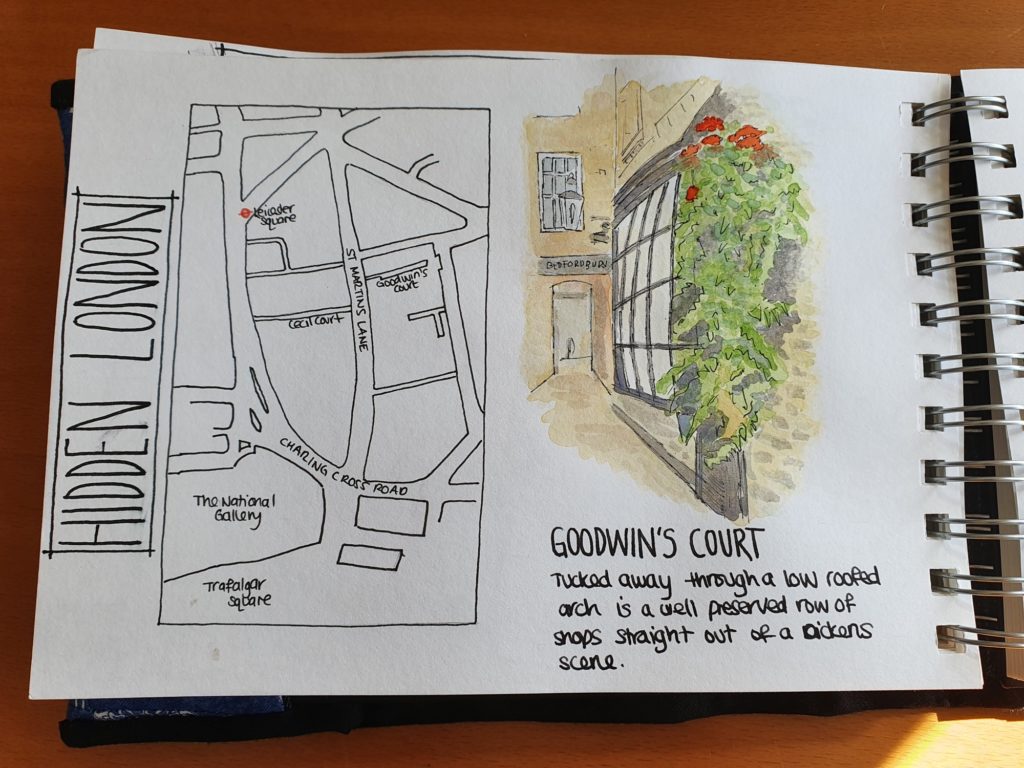 HIDDEN LONDON
Leicester
Square
ST MARTINS LANE
Goodwin's
Court
Cecil Court
CHARING CROSS ROAD
The National
Gallery
Trafalgar
Square
BEDFORDBURY
GOODWIN'S COURT
Tucked away through a low roofed
arch is a well preserved row of
shops straight out of a Dickens
scene.